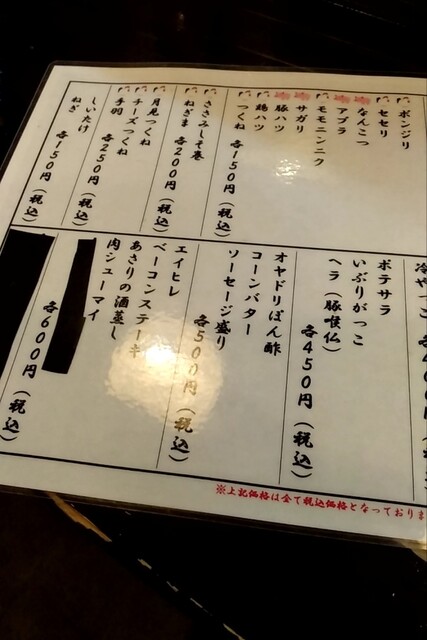 ボンジリ
セセリ
なんこつ
アブラ
モモニンニク
サガリ
豚ハツ
鶏ハツ
つくね
各150円(税込)
ささみしそ巻
ねぎま
各200円(税込)
月見つくね
チーズつくね
手羽
各250円(税込)
しいたけ
ねぎ
各150円(税込)
冷やっこ
ポテサラ
いぶりがっこ
ヘラ(豚喉仏)
各450円(税込)
オヤドリぽん酢
コーンバター
ソーセージ盛り
各500円(税込)
エイヒレ
ベーコンステーキ
あさりの酒蒸し
肉シューマイ
各600円(税込)
※上記価格は全て税込価格となっておりま